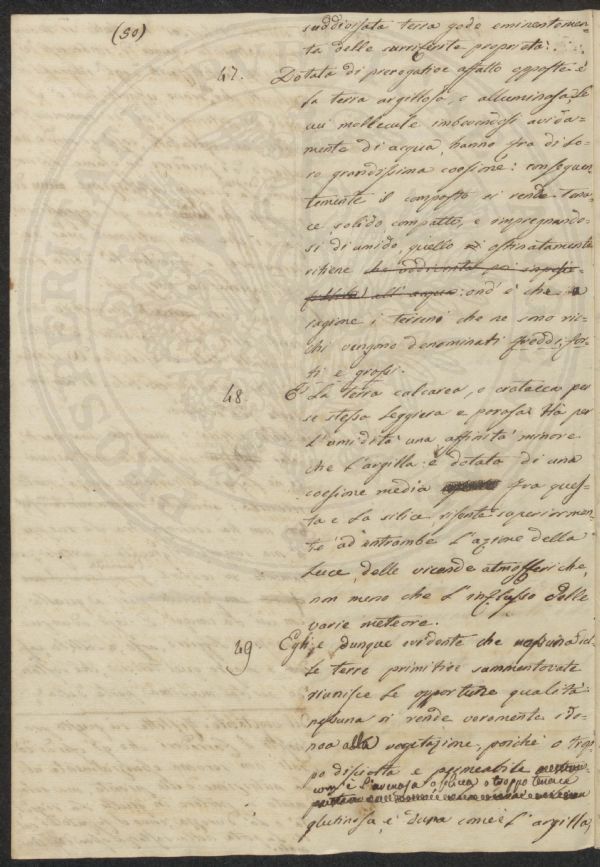 (50)
suddivisata terra gode eminentemen-
te delle surriferite proprietà.
47. Dotata di prerogative affatto opposte è
la terra argillosa, o alluminosa. Le
cui mollecule imbevendosi avida-
mente di acqua, hanno fra di lo-
ro grandissima coesione: conseguen-
temente il composto si rende tena-
ce, solido, compatto, e impregnando-
si di umido, quello ostinatamente
ritiene
all'acqua: ond'è che
i terreni che ne sono ric-
chi vengono denominati freddi, for-
ti e grossi.
48 La terra calcarea, o cretacea per
se stessa leggiera e porosa. Ha per
l'umidità una affinità minore
che l'argilla: è dotata di una
coesione media fra ques-
ta e la silice, risente superiormen-
te ad entrambe l'azione della
luce, delle vicende atmosferiche,
non meno che l'influsso delle
varie meteore.
49 Egli è dunque evidente che nessuna del-
le terre primitive summentovate
riunisce le opportune qualità:
nessuna si rende veramente ido-
nea alla vegetazione, poichè o trop-
po disciolta e permeabile
com'è l'arenosa o silicea, o troppo tenace
glutinosa, e dura come è l'argilla,
PROSPERITAT